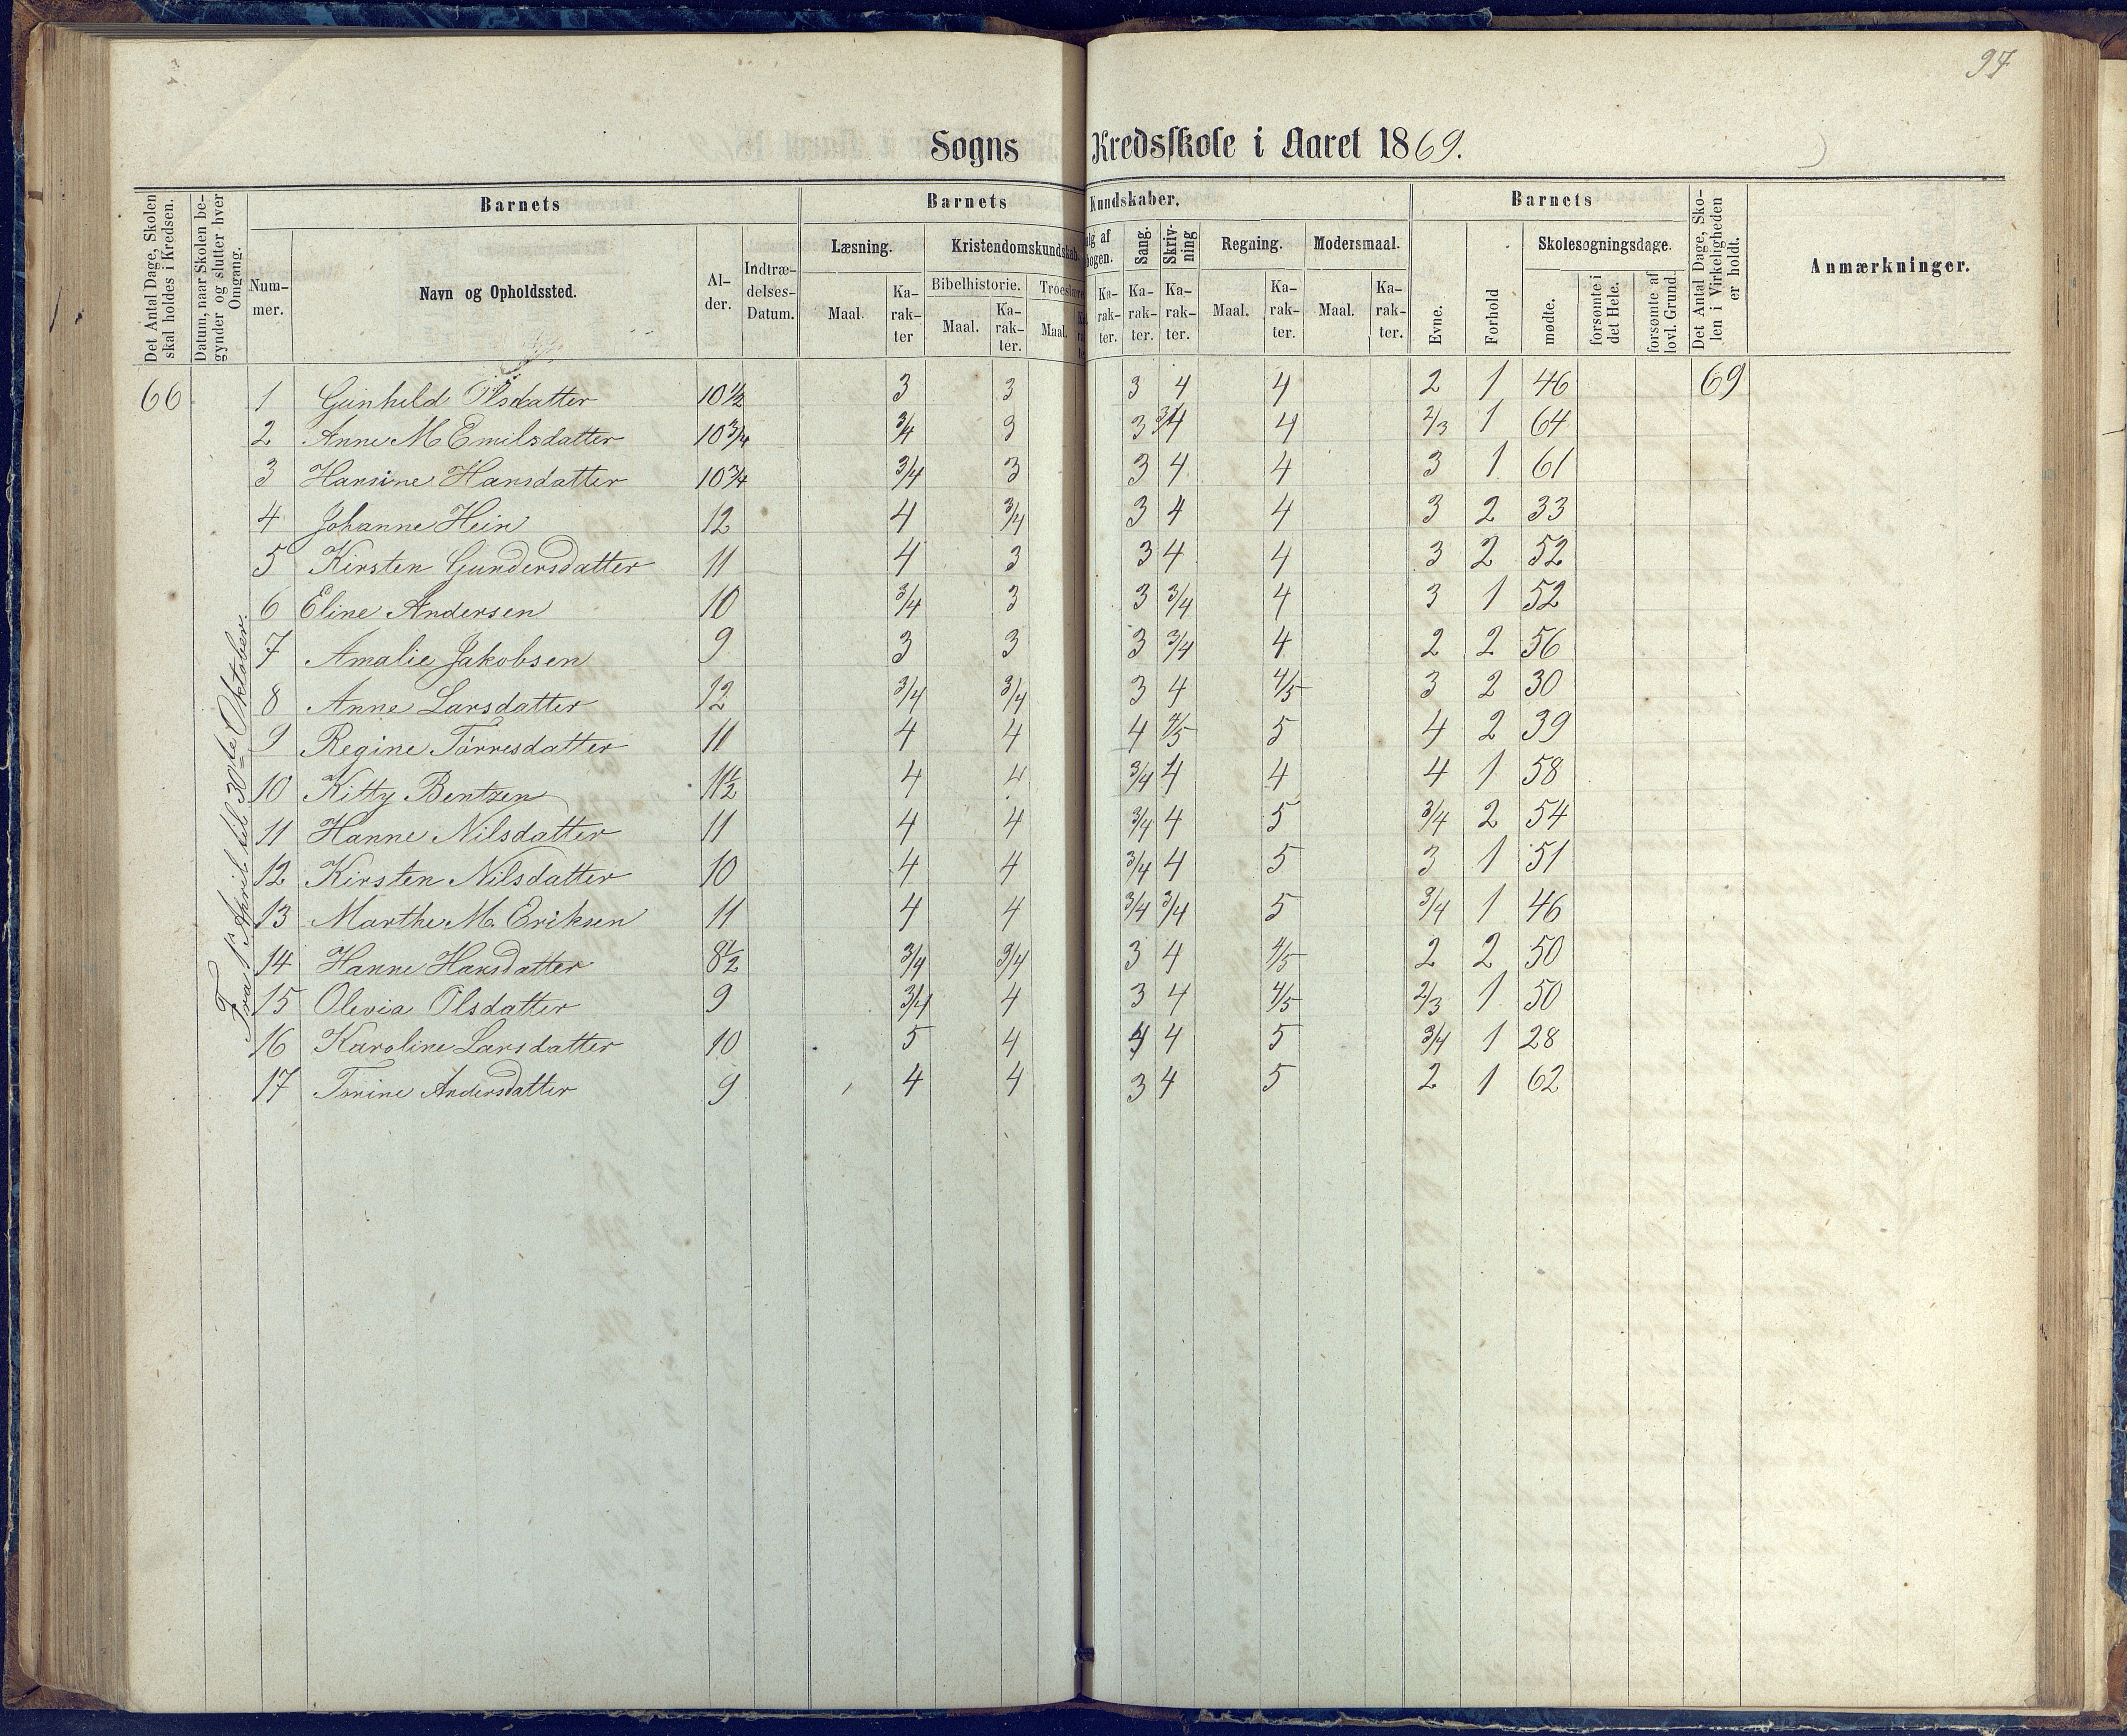 97
Sogns Kredsskole i Aaret 1869.
Det Antal Dage, Skolen skal holdes i Kredsen.
Datum, naar Skolen begynder og slutter hver Omgang.
Barnets
Nummer.
Navn og Opholdssted.
Alder.
Indtrædelses-Datum.
Barnets Kundskaber.
Læsning.
Maal.
Karakter
Kristendomskundskab.
Bibelhistorie.
Maal.
Karakter.
Troeslære
Maal.
Karakter.
Sang.
Karakter.
Skrivning
Karakter.
Regning.
Maal.
Karakter.
Modersmaal.
Maal.
Karakter.
Barnets
Evne.
Forhold
Skolesøgningsdage.
mødte.
forsømte i det Hele.
forsømte af lovl. Grund
Det Antal Dage, Skolen i Virkeligheden er holdt.
Anmærkninger.
Fra 1ste April til 30te Oktober.
66 1 Gunhild Olsdatter 10 1/2 3 3 3 4 4 2 1 46 69
2 Anne M Emilsdatter 10 3/4 3/4 3 3 3/4 4 2/3 1 64
3 Hansine Hansdatter 10 3/4 3/4 3 3 4 4 3 1 61
4 Johanne Hein 12 4 3/4 3 4 4 3 2 33
5 Kirsten Gundersdatter 11 4 3 3 4 4 3 2 52
6 Eline Andersen 10 3/4 3 3 3/4 4 3 1 52
7 Amalie Jakobsen 9 3 3 3 3/4 4 2 2 56
8 Anne Larsdatter 12 3/4 3/4 3 4 4/5 3 2 30
9 Regine Tørresdatter 11 4 4 4 4/5 5 4 2 39
10 Kitty Bentzen 11 1/2 4 4 3/4 4 4 4 1 58
11 Hanne Nilsdatter 11 4 4 3/4 4 5 3/4 2 54
12 Kirsten Nilsdatter 10 4 4 3/4 4 5 3 1 51
13 Marthe M. Eriksen 11 4 4 3/4 3/4 5 3/4 1 46
14 Hanne Hansdatter 8 1/2 3/4 3/4 3 4 4/5 2 2 50
15 Olevia Olsdatter 9 3/4 4 3 4 4/5 2/3 1 50
16 Karoline Larsdatter 10 5 4 4 4 5 3/4 1 28
17 Tomine Andersdatter 9 4 4 3 4 5 2 1 62